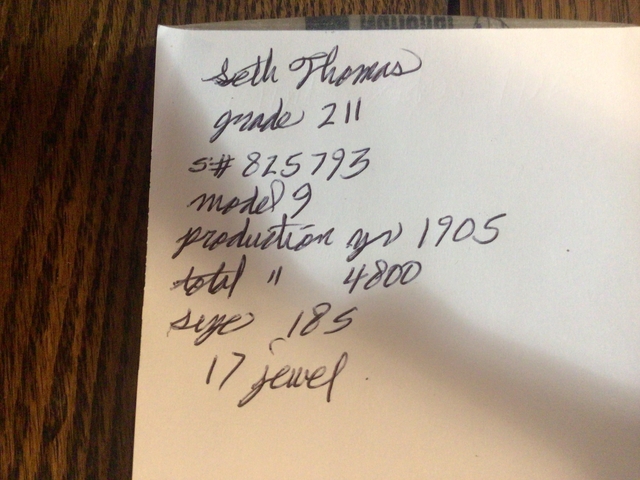 Seth Thomas
grade 211
s# 825793
model 9
production yr 1905
total " 4800
size 18s
17 jewel